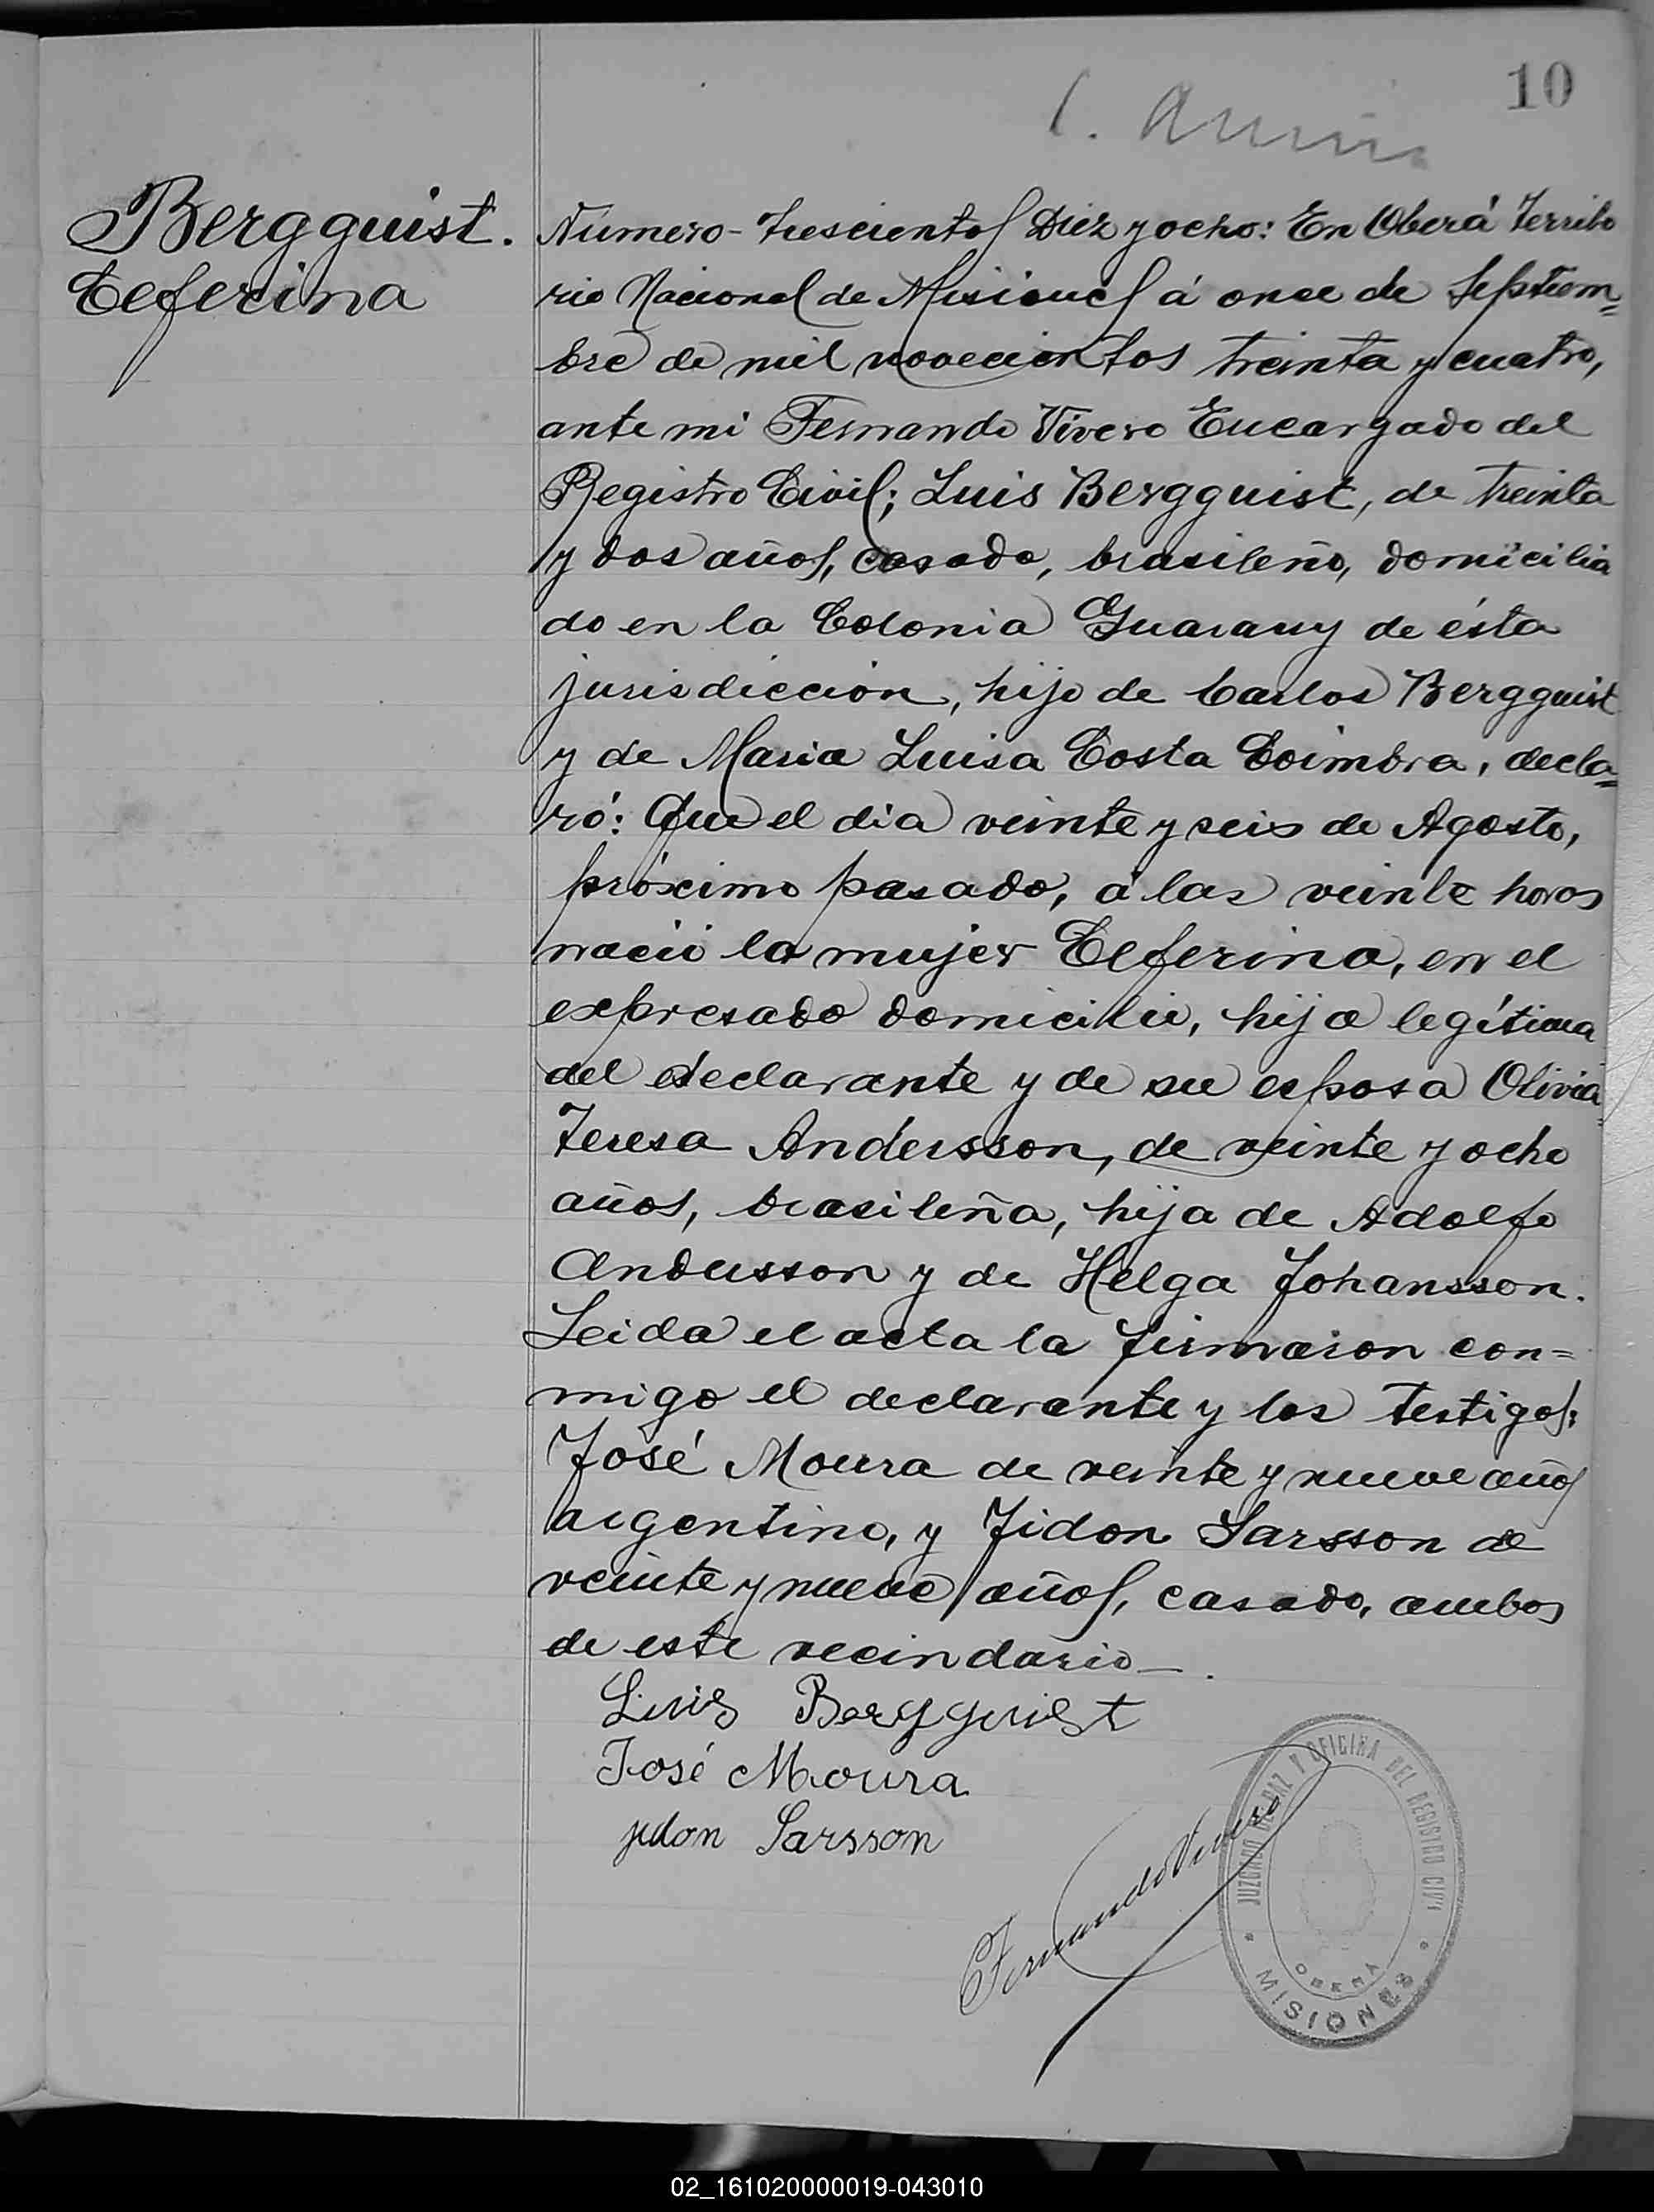 10
Bergquist.
Ceferina
Número - Trescientos Diez y ocho: En Oberá Territo
rio Nacional de Misiones á once de Septiem=
bre de mil novecientos treinta y cuatro,
ante mi Fernando Vivero Encargado del
Registro Civil; Luis Bergquist, de treinta
y dos años, casado, brasileño, domicilia
do en la Colonia Guarany de ésta
jurisdicción, hijo de Carlos Bergquist
y de Maria Luisa Costa Coimbra, decla=
ró: Que el dia veinte y seis de Agosto,
próximo pasado, á las veinte horas
nació la mujer Ceferina, en el
expresado domicilio, hija legítima
del declarante y de su esposa Olivia
Teresa Andersson, de veinte y ocho
años, brasileña, hija de Adolfo
Andersson y de Helga Johansson.
Leida el acta la firmaron con=
migo el declarante y los testigos:
José Moura de veinte y nueve años
argentino, y Jidon Larsson de
veinte y nueve años, casado, ambos
de este vecindario—.
Luis Bergquist
José Moura
jidon Larsson
Fernando Vivero
JUZGADO DE PAZ Y OFICINA DEL REGISTRO CIVIL
OBERÁ
MISIONES
02_161020000019-043010